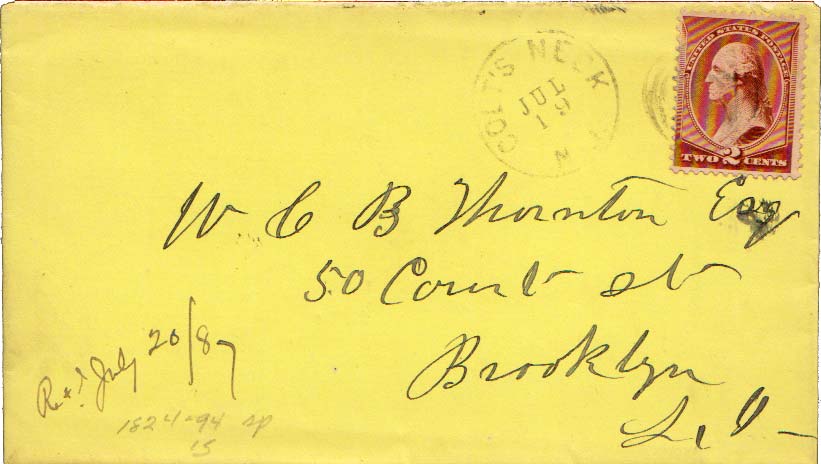 COLT'S NECK
JUL
19
N
UNITED STATES POSTAGE
TWO 2 CENTS
W C B Thornton Esq
50 Court st
Brooklyn
L. I.
July 20/87
1824-94
15